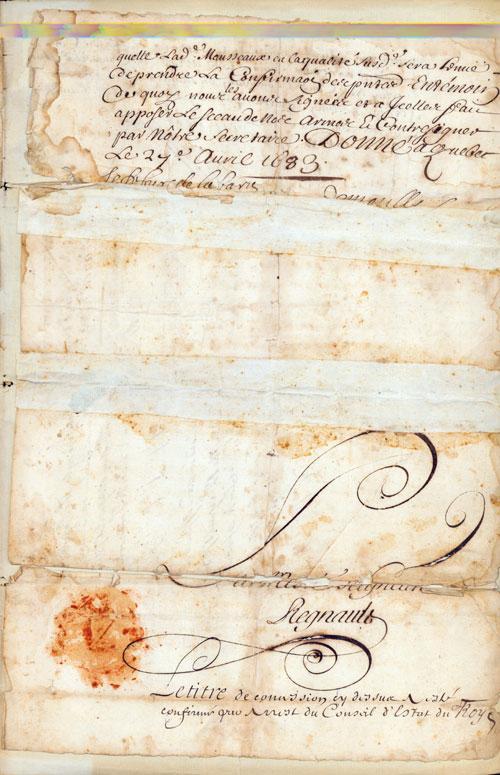 quelle Lad.e Mousseaux en Laqualité Susd.e sera tenue
de prendre La Confirmaõn desp̃ntes En temoin
de quoy nous les avons signées et a Jcelles fait
apposer Le Sceau de Nos Armes Et Contresigner
par Nostre Secretaire. DONNÉ a Quebec
Le 27.e Avril 1683.
Lefebure de la barre
Regnault
Le titre de concession cy dessus A esté
confirmé par Arrest du Conseil d'Estat du Roy